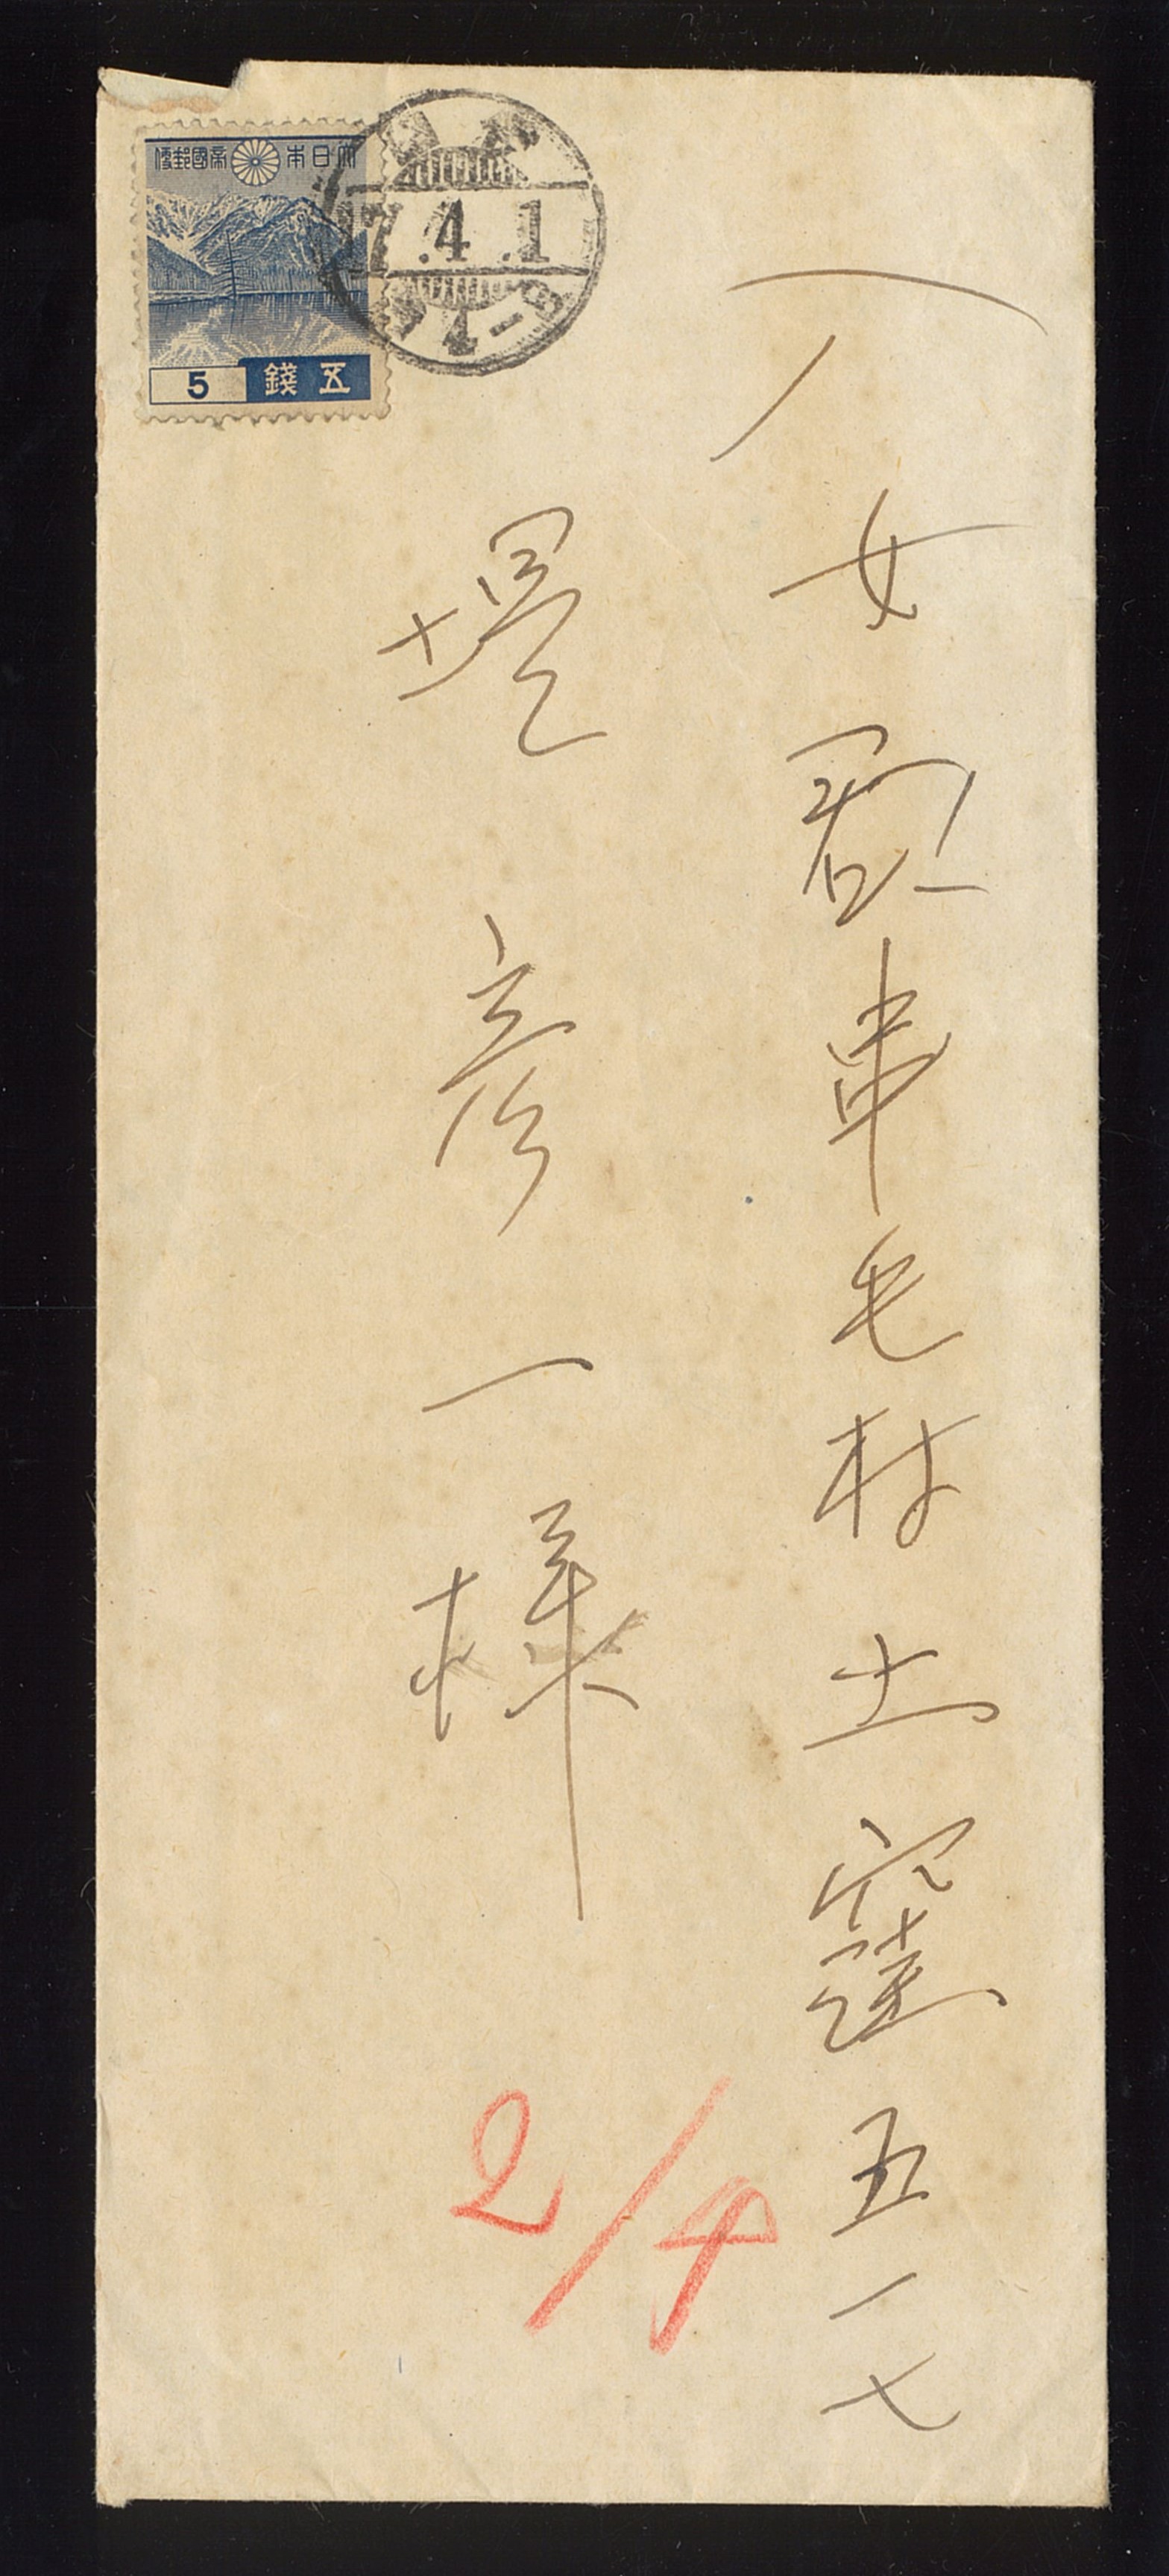 八女郡串毛村土窪五一七
堤彦一様
大日本帝國郵便
五錢
5
17.4.1
2/4